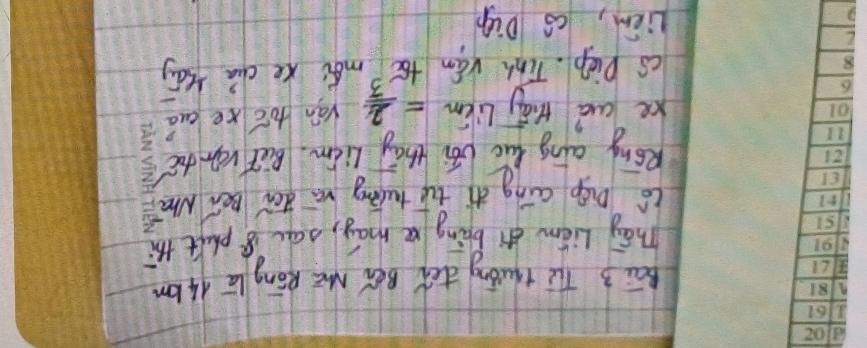 Bài 3 Từ trường đến Bến Nhà Rồng là 14 km
Thầy Liêm đi bằng xe máy, sau 8 phút thì
Cô Diệp cũng đi từ trường và đến Bến Nhà
Rồng cùng lúc với thầy Liêm. Biết vận tốc
xe của thầy Liêm = 2/3 vận tốc xe của
cô Diệp. Tính vận tốc mỗi xe của thầy
Liêm, cô Diệp
TÂN VĨNH TIẾN
6
7
8
9
10
11
12
13
14
15
16
17
18
19
20